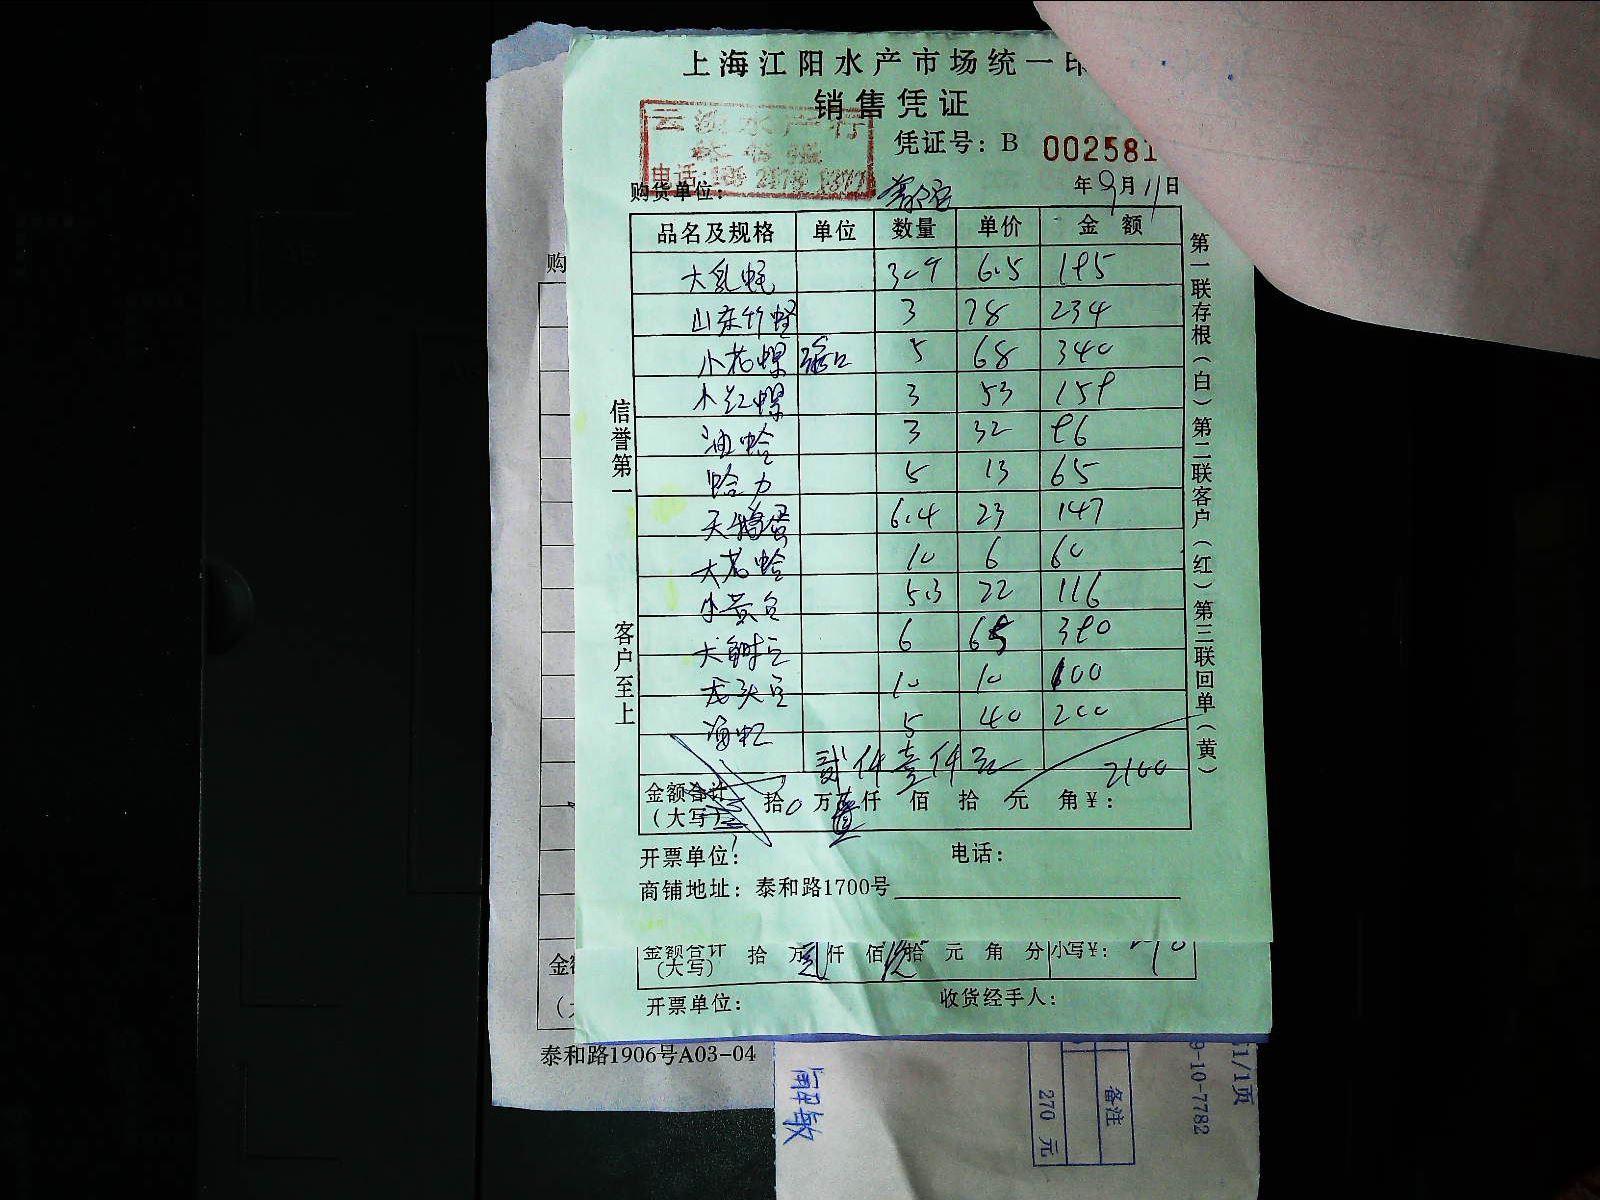 上海江阳水产市场统一印
销售凭证
水产行
凭证号：B 002581
电话:
购货单位：
年9月11日
品名及规格 单位 数量 单价 金额
大乳蚝 309 6.5 195
山东竹蛏 3 78 234
小花螺 5 68 340
小红螺 3 53 159
油蛤 3 32 96
蛤力 5 13 65
天鹅蛋 6.4 23 147
大花蛤 10 6 60
小黄豆 5.3 22 116
大 6 65 390
龙头豆 10 10 100
海虹 5 40 200
贰仟壹佰元 2100
金额合计（大写） 拾0万 仟 佰 拾 元 角￥：
开票单位：
电话：
商铺地址：泰和路1700号
信誉第一
客户至上
第一联存根（白）第二联客户（红）第三联回单（黄）
金额合计（大写） 拾 万 仟 佰 拾 元 角 分 小写￥：
开票单位：
收货经手人：
购
金
泰和路1906号A03-04
1/1页
9-10-7782
备注
270 元